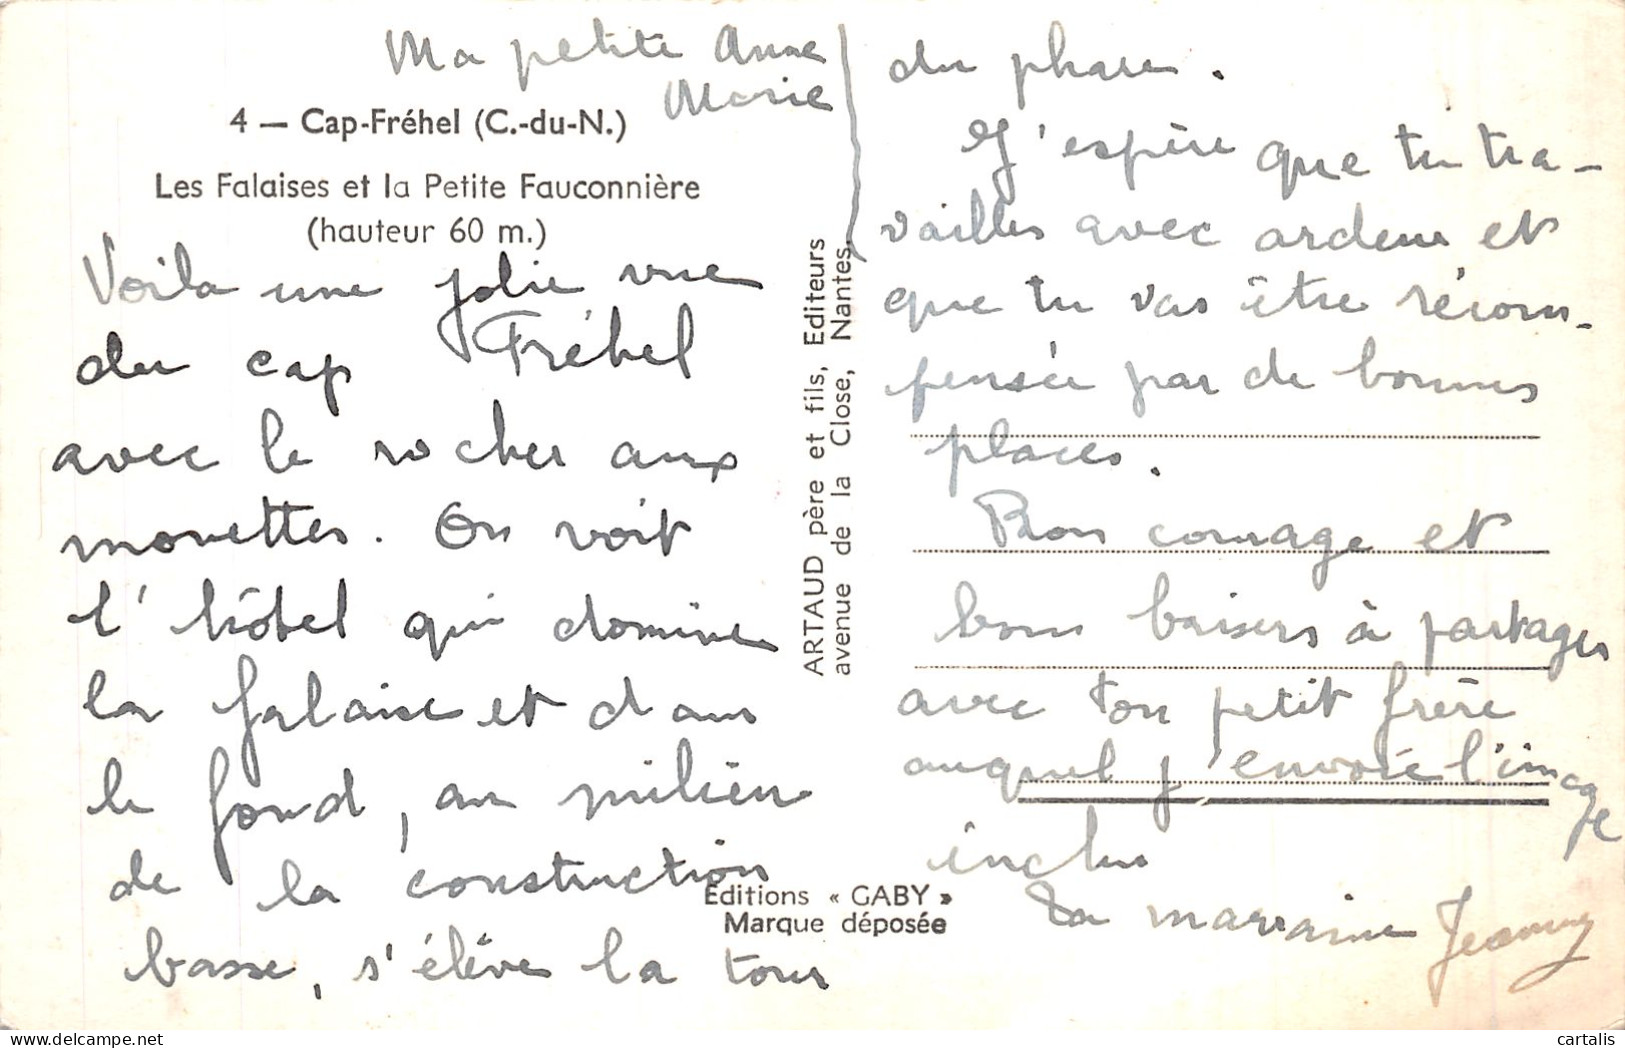 Ma petite Anne
Marie
4 — Cap-Fréhel (C.-du-N.)
Les Falaises et la Petite Fauconnière
(hauteur 60 m.)
Voila une jolie vue
du cap Fréhel
avec le rocher aux
mouettes. On voit
l'hôtel qui domine
la falaise et dans
le fond, au milieu
de la construction
basse, s'élève la tour
du phare.
J'espère que tu tra-
vailles avec ardeur et
que tu vas être récom-
pensée par de bonnes
places.
Bon courage et
bons baisers à partager
avec ton petit frère
auquel j'envoie l'image
inclus
Ta marraine Jeanny
ARTAUD père et fils, Editeurs
avenue de la Close, Nantes.
Editions « GABY »
Marque déposée
cartalis